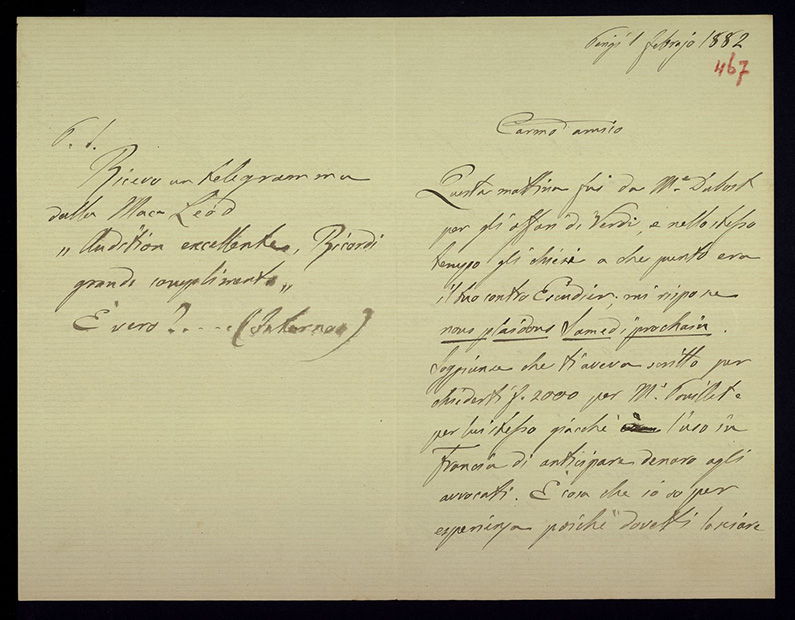 Parigi 1 febrajo 1882
467
Carmo amico
Questa mattina fui da Mr. Dubost
per gli affari di Verdi, e nello stesso
tempo gli chiesi a che punto era
il tuo contro Escudier. mi rispose
nous plaidons Samedi prochain.
Soggiunse che t'aveva scritto per
chiederti f. 2000 per Mr. Pouillet e
per lui stesso giacchè l'uso in
Francia di anticipare denaro agli
avvocati. E cosa che io so per
esperienza poichè dovetti lasciare
P. S.
Ricevo un telegramma
dalla Mac Leod
„ Audition excellente, Ricordi
grands compliments „
È vero ?.....